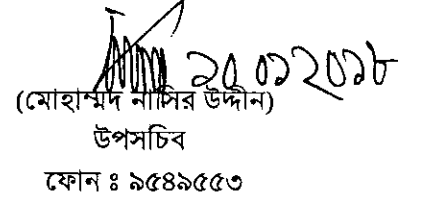 ২০.০১.২০১৮
(মোহাম্মদ নাসির উদ্দীন)
উপসচিব
ফোন ঃ ৯৫৪৯৫৫৩